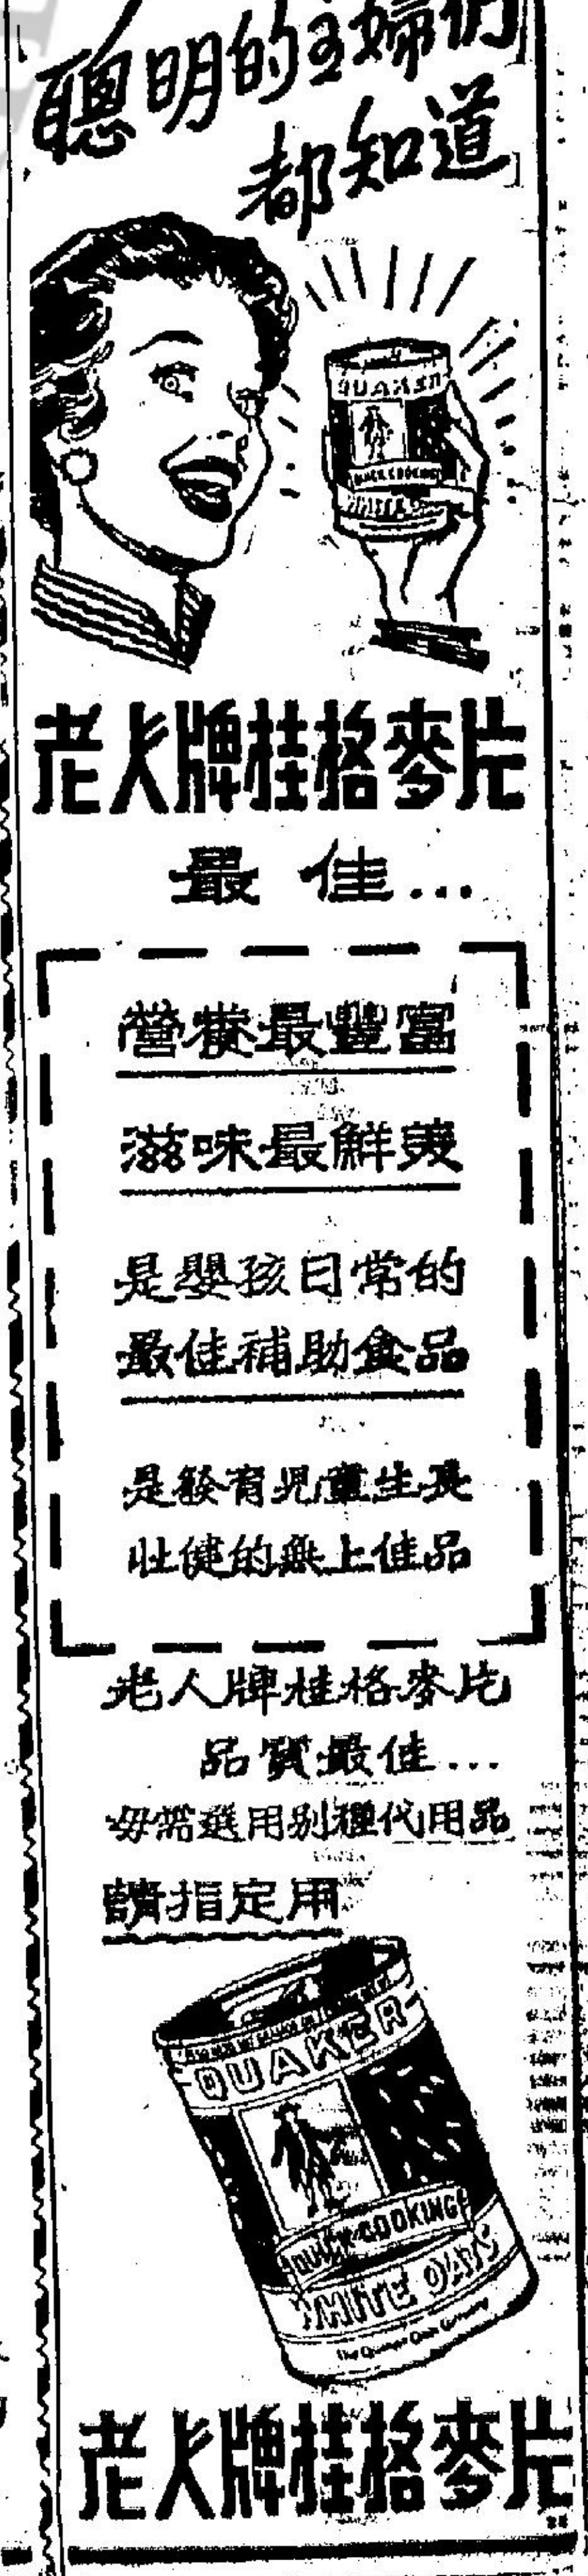 聰明的主婦們
都知道
QUAKER
QUICK COOKING
WHITE
老人牌桂格麥片
最佳...
營養最豐富
滋味最鮮美
是嬰孩日常的
最佳補助食品
是發育兒童生長
壯健的無上佳品
老人牌桂格麥片
品質最佳...
毋需選用別種代用品
請指定用
QUAKER
QUICK COOKING
WHITE OATS
The Quaker Oats Company
老人牌桂格麥片